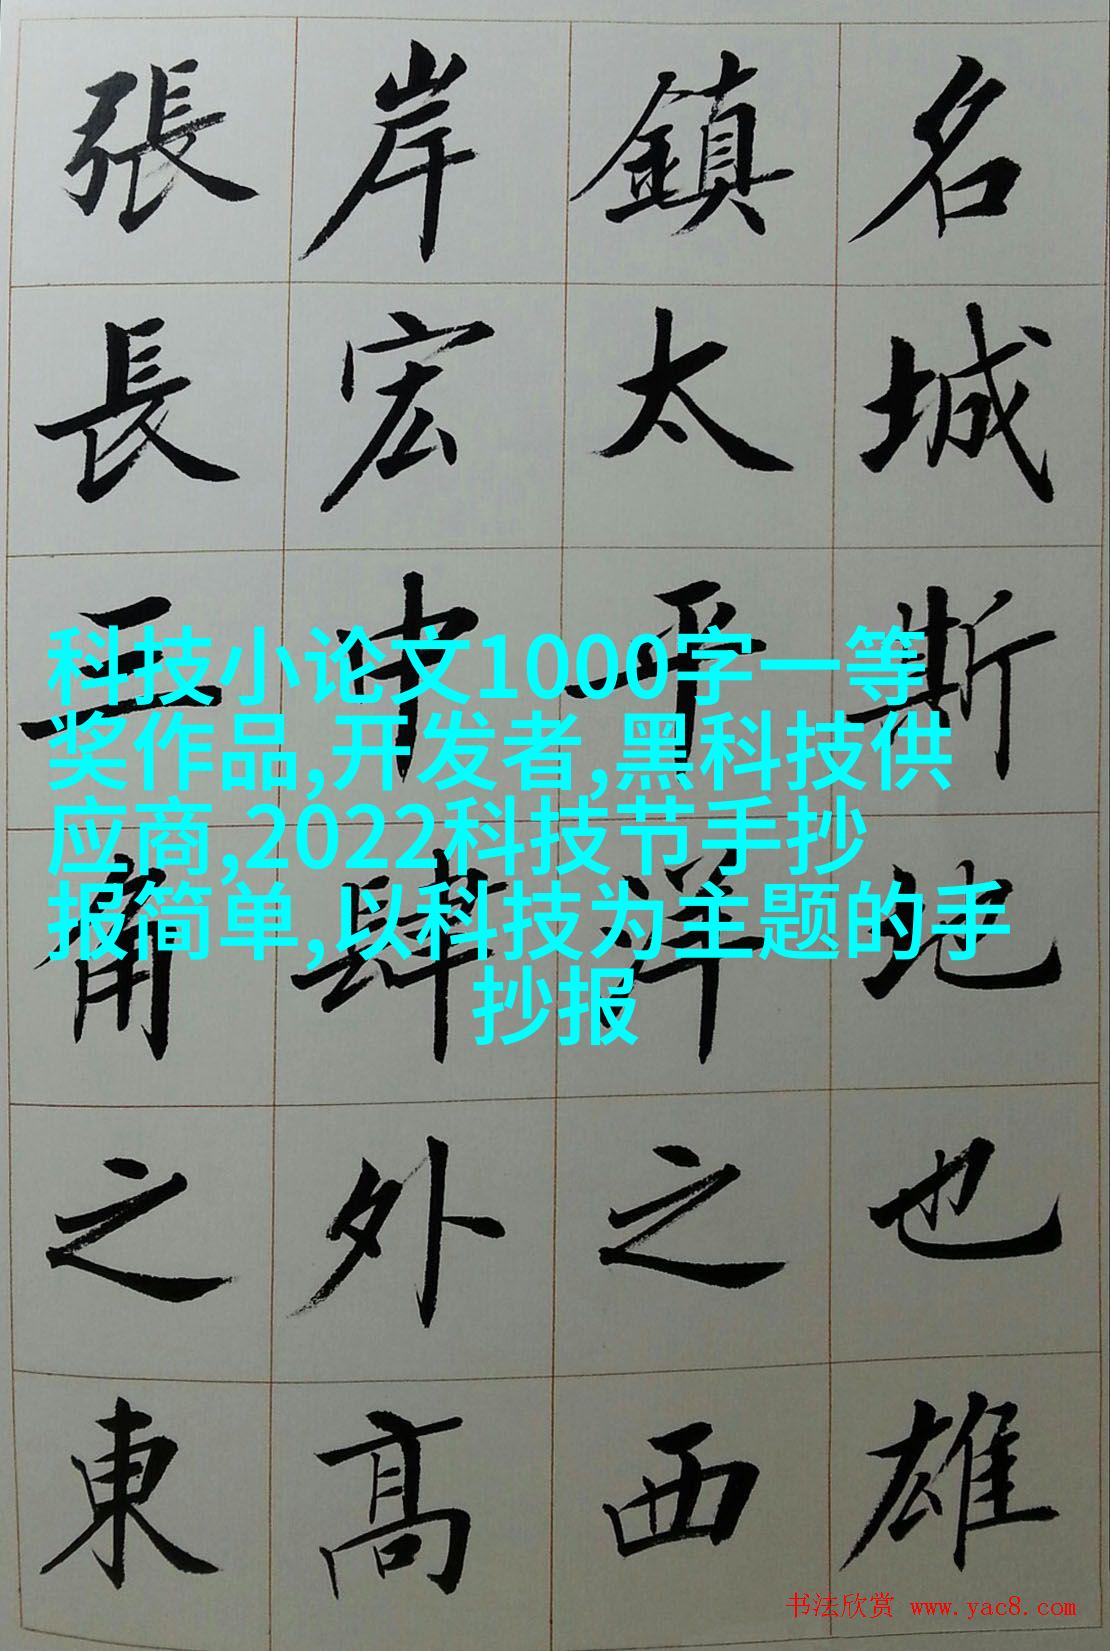 名城斯地也雄
鎮太平洋之西
岸宏中肆外高
張長三角之東
科技小论文1000字一等
奖作品,开发者,黑科技供
应商,2022科技节手抄
报简单,以科技为主题的手
抄报
书法欣赏 www.yac8.com